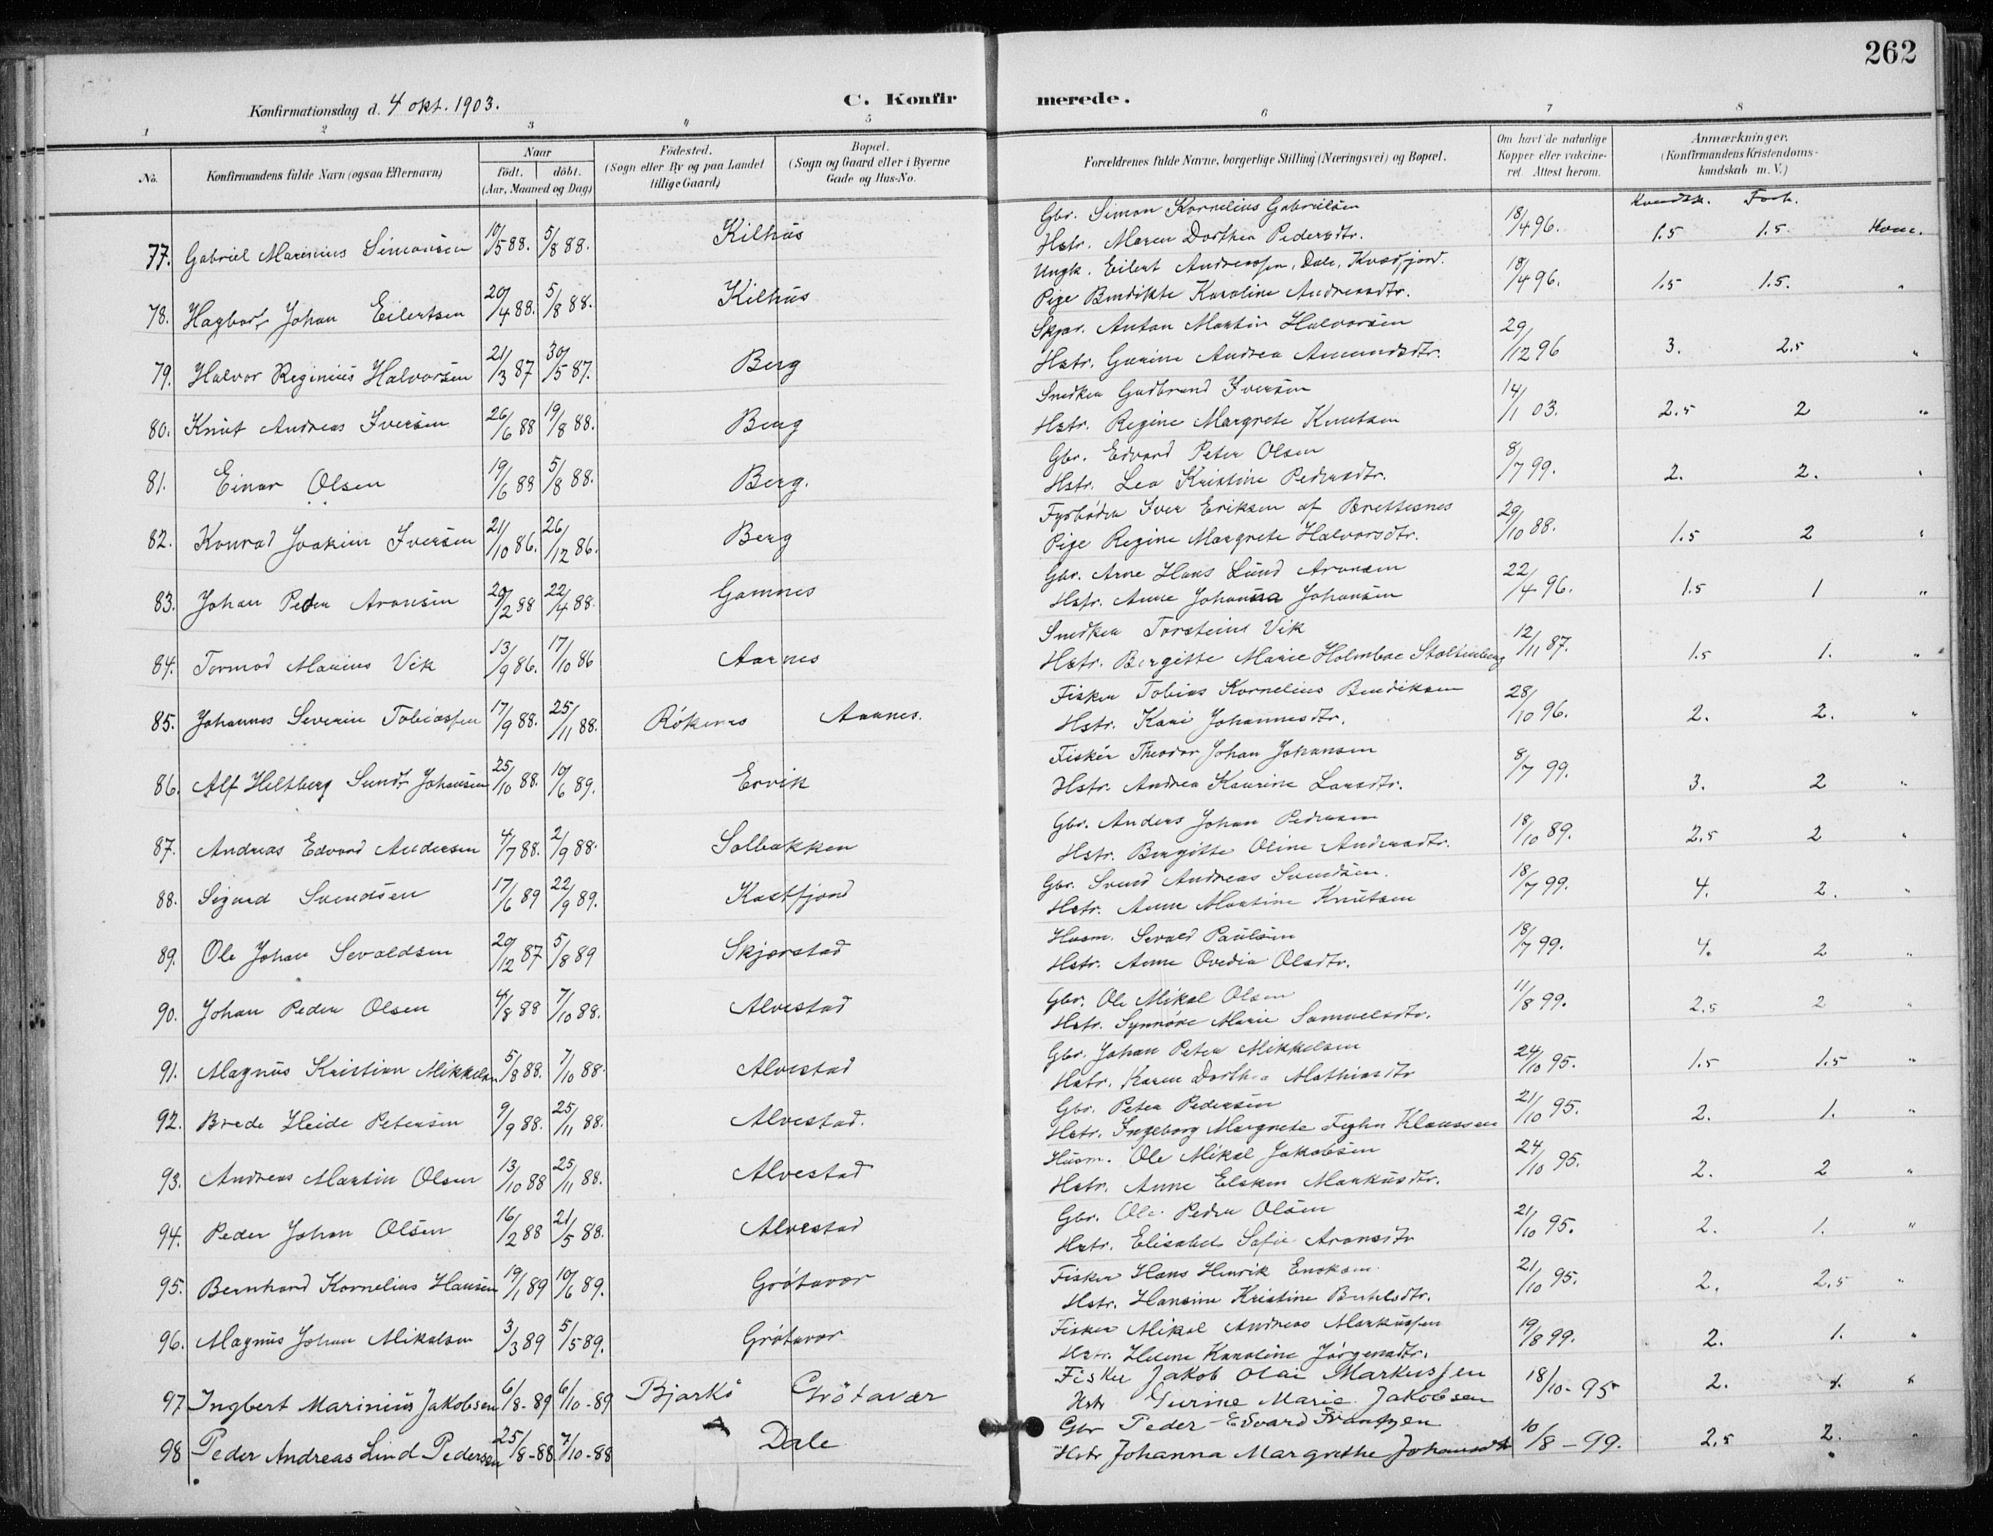 262
Konfirmationsdag d. 4 okt. 1903.
C. Konfirmerede.
1 2 3 4 5 6 7 8
No.
Konfirmandens fulde Navn (ogsaa Efternavn)
Naar
født. döbt.
(Aar, Maaned og Dag)
Födested.
(Sogn eller By og paa Landet
tillige Gaard)
Bopæl.
(Sogn og Gaard eller i Byerne
Gade og Hus-No.
Forældrenes fulde Navne, borgerlige Stilling (Næringsvei) og Bopæl.
Om havt de naturlige
Kopper eller vakcine-
ret. Attest herom.
Anmærkninger.
(Konfirmandens Kristendoms-
kundskab m. V.)
Kundsk. Forh.
77. Gabriel Marinius Simonsen 10/5 88. 5/8 88. Kilhus
Gbr. Simon Kornelius Gabrielsen
Hstr. Maren Dorthea Pedersdtr. 18/4 96. 1.5 1.5. Hove.
78. Hagbart Johan Eilertsen 20/4 88. 5/8 88. Kilhus
Ungk. Eilert Andreassen, Dale, Kvædfjord.
Pige Bendikte Karoline Andreasdtr. 18/4 96. 1.5 1.5. "
79. Halvor Reginius Halvorsen 21/3 87 30/5 87. Berg
Skpr. Anton Martin Halvorsen
Hstr. Gurine Andrea Amundsdtr. 29/12 96 3. 2.5 "
80. Knut Andreas Iversen 26/6 88 19/8 88. Berg
Snedker Gudbrand Iversen
Hstr. Regine Margrete Knutsen 14/1 03. 2.5 2 "
81. Einar Olsen 19/6 88 5/8 88. Berg.
Gbr. Edvard Peter Olsen
Hstr. Lea Kristine Pedersdtr. 8/7 99. 2. 2. "
82. Konrad Joakim Iversen 21/10 86. 26/12 86. Berg
Fyrbøder Iver Eriksen af Brettesnes
Pige Regine Margrete Halvorsdtr. 29/10 88. 1.5 2 "
83. Johan Peder Aronsen 20/2 88 22/4 88. Gamnes
Gbr. Arne Hans Lund Aronsen
Hstr. Anne Johanna Johansen 22/4 96. 1.5 1 "
84. Tormod Marius Vik 13/9 86. 17/10 86 Aarnes
Snedker Torsteins Vik
Hstr. Birgitte Marie Holmboe Stoltenberg 12/11 87. 1.5 1. "
85. Johannes Severin Tobiassen 17/9 88. 25/11 88. Rökenes Aarnes.
Fisker Tobias Kornelius Bendiksen
Hstr. Kari Johannesdtr. 28/10 96. 2. 2. "
86. Alf Heltberg Sundt Johansen 25/10 88. 10/6 89. Ervik
Fisker Theodor Johan Johansen
Hstr. Andrea Kaurine Larsdtr. 8/7 99. 3. 2 "
87. Andreas Edvard Andersen 4/7 88. 2/9 88. Solbakken
Gbr. Anders Johan Pedersen
Hstr. Birgitte Oline Andersdtr. 18/10 89. 2.5 2 "
88. Sigurd Svendsen 17/6 89 22/9 89. Kastfjord
Gbr. Svend Andreas Svendsen.
Hstr. Anne Martine Knutsen 18/7 99. 4. 2. "
89. Ole Johan Sevaldsen 20/12 87 5/8 89 Skjærstad
Husm. Sevald Paulsen
Hstr. Anne Ovedia Olsdtr. 18/7 99. 4. 2 "
90. Johan Peder Olsen 4/8 88 7/10 88. Alvestad
Gbr. Ole Mikal Olsen
Hstr. Synnöve Marie Samuelsdtr. 11/8 99. 2.5 2 "
91. Magnus Kristian Mikkelsen 5/8 88. 7/10 88. Alvestad
Gbr. Johan Peter Mikkelsen
Hstr. Karen Dorthea Mathiasdtr 24/10 95. 1.5 1.5 "
92. Brede Heide Petersen 9/9 88. 25/11 88. Alvestad.
Gbr. Peter Pedersen
Hstr. Ingeborg Margrete Klaussen 21/10 95. 2. 1. "
93. Andreas Martin Olsen 13/10 88 25/11 88. Alvestad
Husm. Ole Mikal Jakobsen
Hstr. Anne Elsken Markusdtr. 24/10 95. 2. 2 "
94. Peder Johan Olsen 16/2 88 21/5 88. Alvestad
Gbr. Ole Peder Olsen
Hstr. Elisabet Sofie Aronsdtr 21/10 95. 2. 1. "
95. Bernhard Kornelius Hansen 19/1 89 10/6 89. Grötavær
Fisker Hans Henrik Enoksen.
Hstr. Hansine Kristine Bertelsdtr. 21/10 95. 2. 2.5 "
96. Magnus Johan Mikalsen 3/3 89 5/5 89. Grötavær
Fisker Mikal Andreas Markussen
Hstr. Helene Karoline Jörgensdtr. 19/8 99. 2. 1. "
97 Ingbert Marinius Jakobsen 6/8-89 6/10-89 Bjarkö Grötavær
Fisker Jakob Olai Markussen
Hstr Jurine Marie Jakobsen 18/10-95 2. 1. "
98 Peder Andreas Lind Pedersen 25/8-88 7/10-88 Dale
Gbr Peder Edvard Frantzen
Hstr Johanna Margrethe Johansdtr 10/8-99. 2.5 2. "